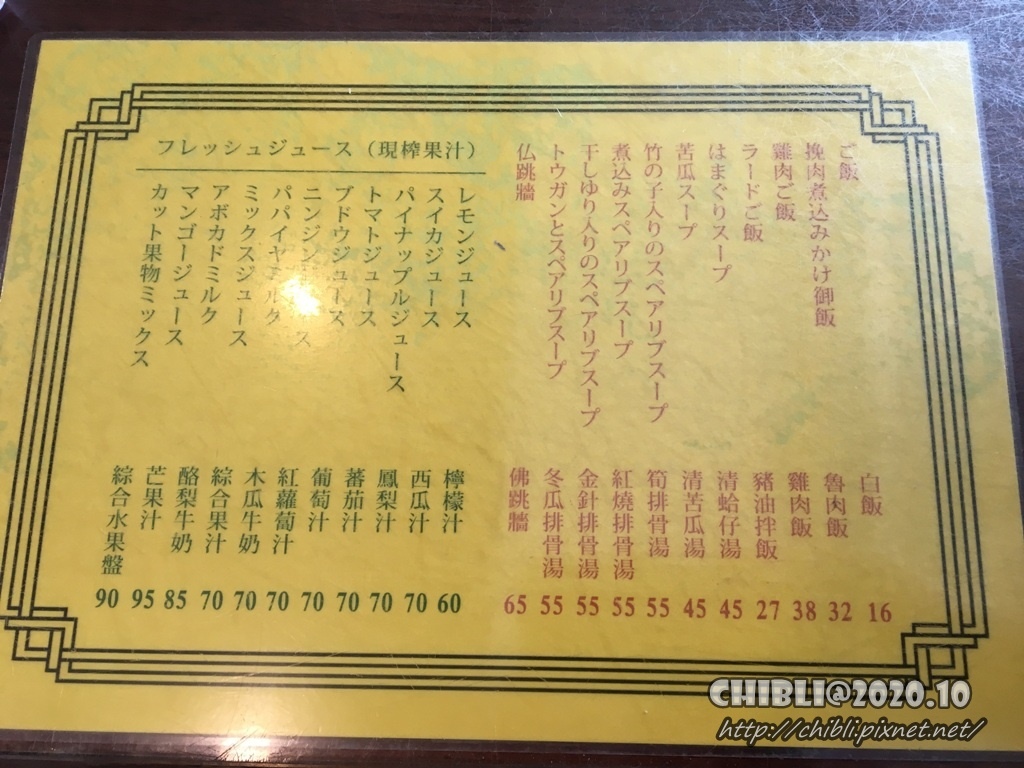 ご飯
挽肉煮込みかけ御飯
雞肉ご飯
ラードご飯
はまぐりスープ
苦瓜スープ
竹の子入りのスペアリブスープ
煮込みスペアリブスープ
干しゆり入りのスペアリブスープ
トウガンとスペアリブスープ
仏跳牆
白飯 16
魯肉飯 32
雞肉飯 38
豬油拌飯 27
清蛤仔湯 45
清苦瓜湯 45
筍排骨湯 55
紅燒排骨湯 55
金針排骨湯 55
冬瓜排骨湯 55
佛跳牆 65
フレッシュジュース（現榨果汁）
レモンジュース
スイカジュース
パイナップルジュース
トマトジュース
ブドウジュース
ニンジン
パパイヤミルク
ミックスジュース
アボカドミルク
マンゴージュース
カット果物ミックス
檸檬汁 60
西瓜汁 70
鳳梨汁 70
蕃茄汁 70
葡萄汁 70
紅蘿蔔汁 70
木瓜牛奶 70
綜合果汁 70
酪梨牛奶 85
芒果汁 95
綜合水果盤 90
CHIBLI@2020.10
http://chibli.pixnet.net/